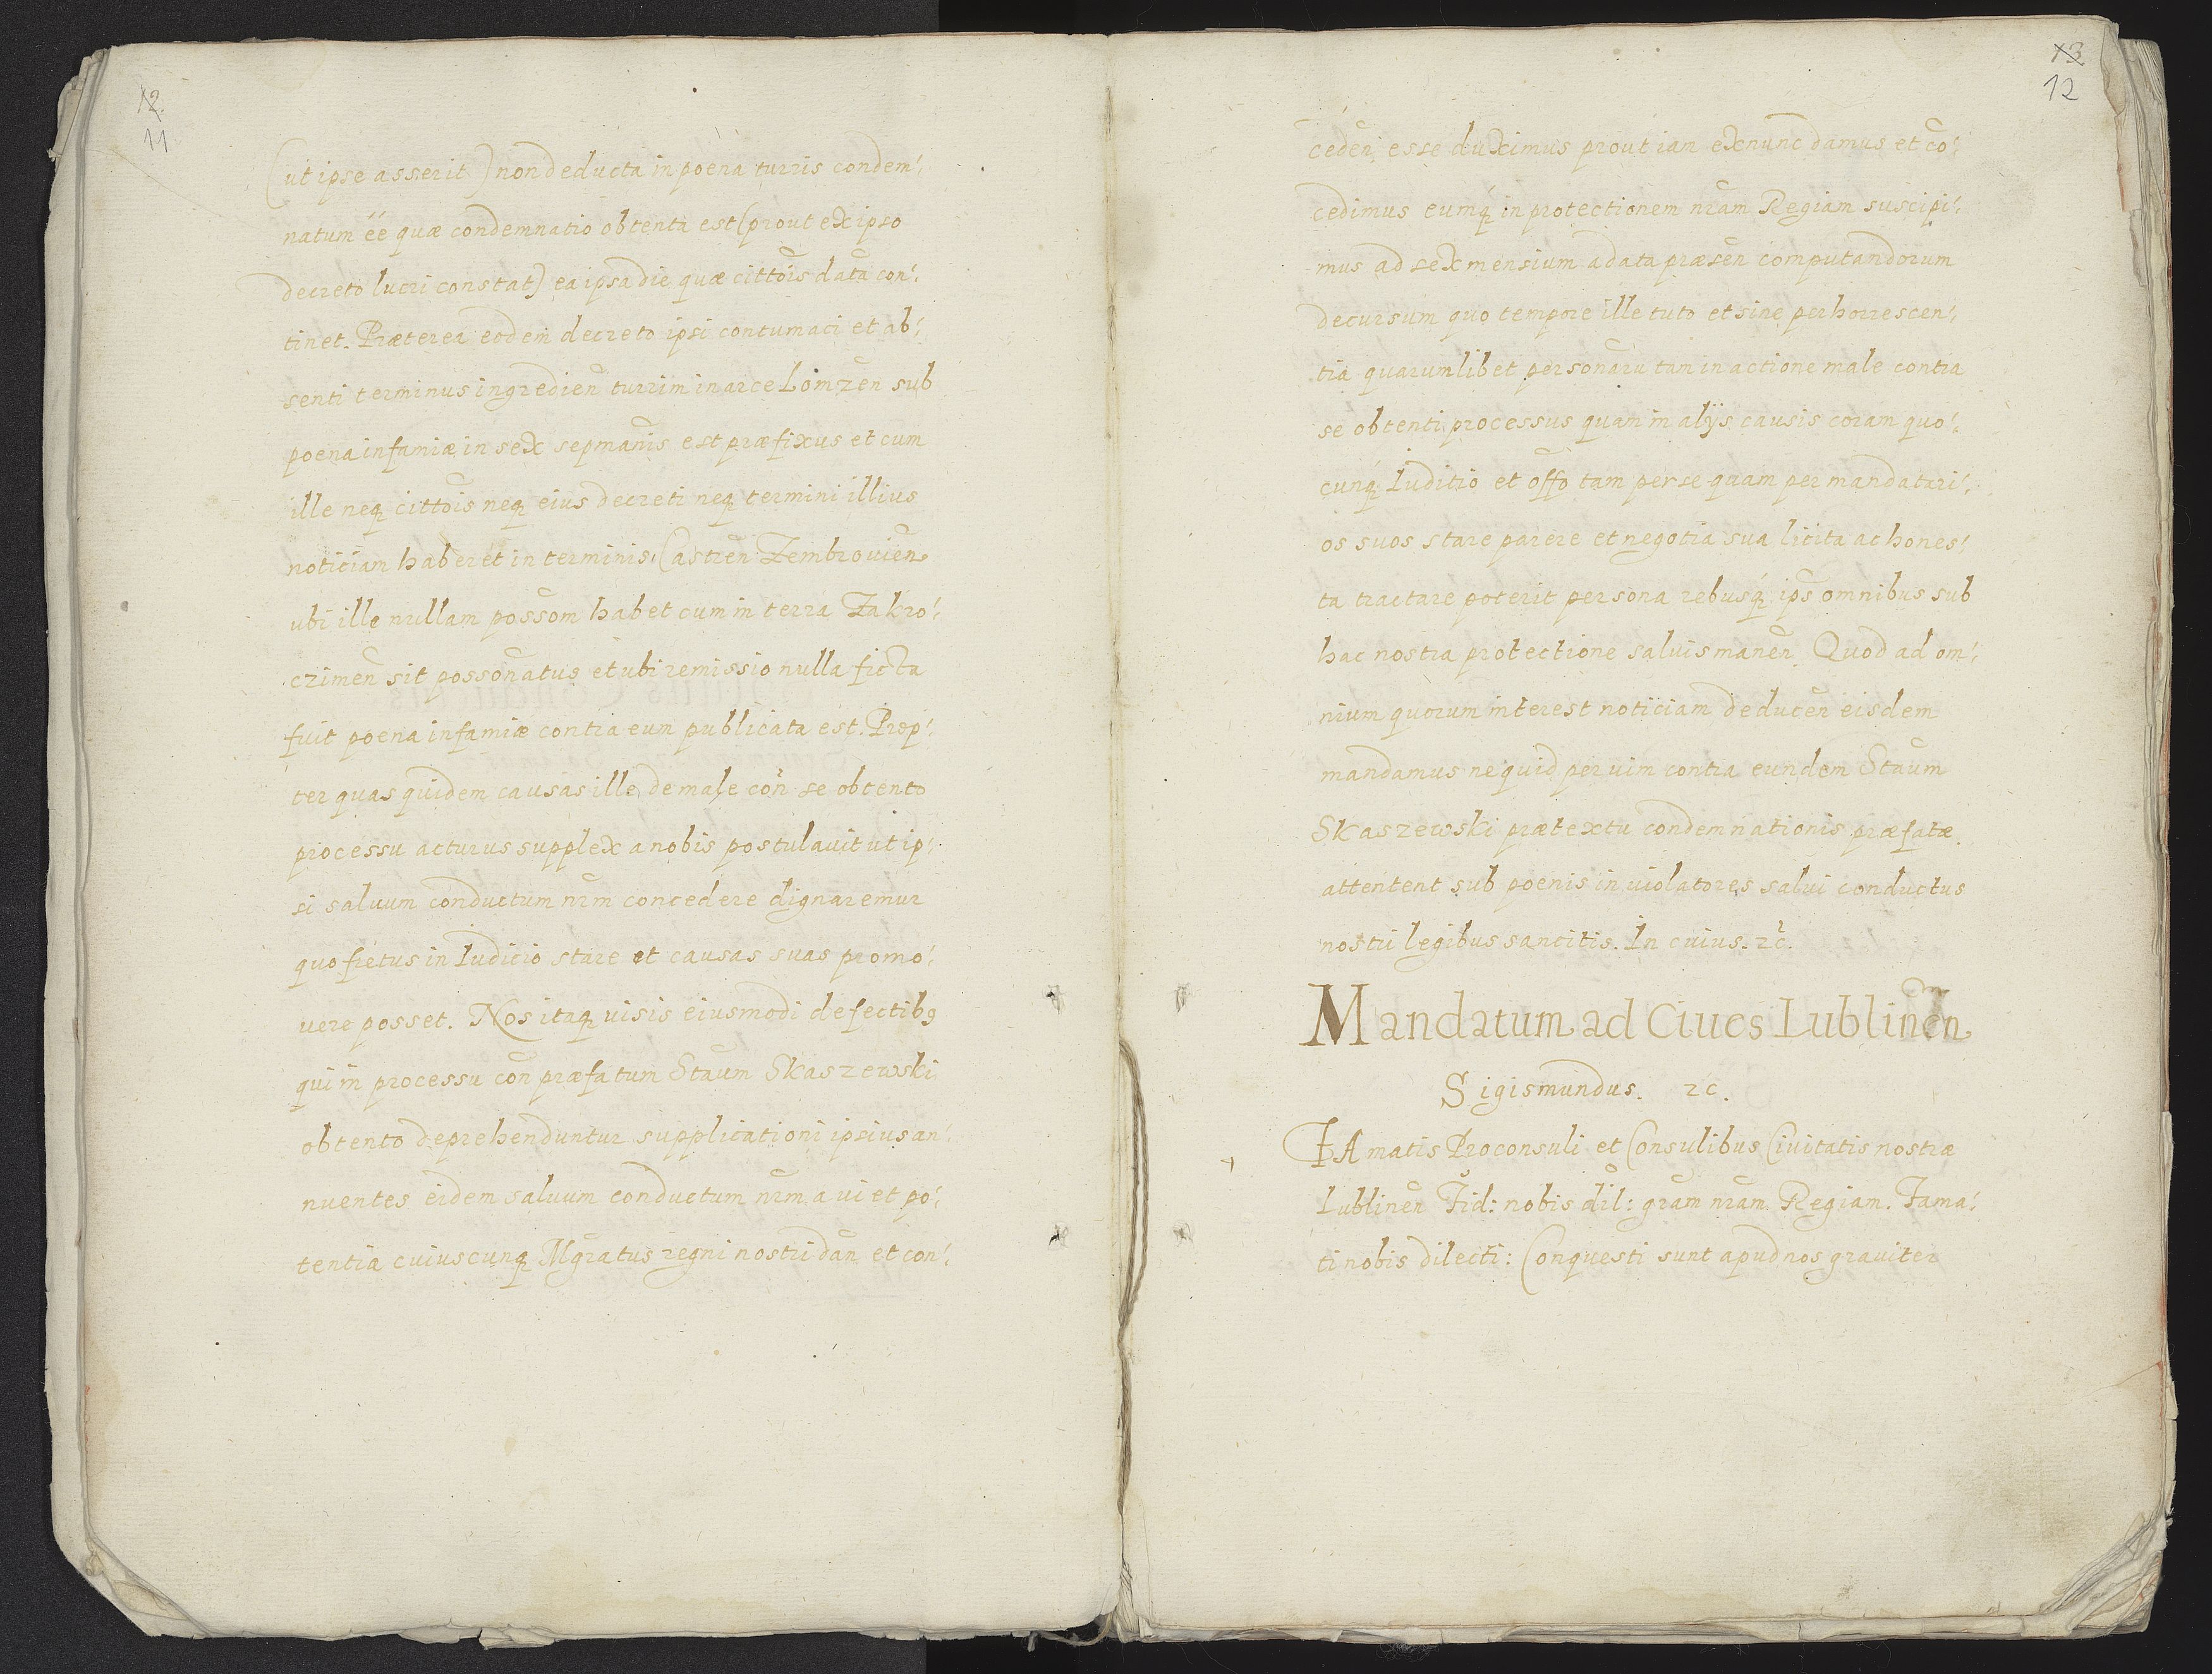 12
11
(ut ipse asserit) non deducta in poena turris condem¬
natum éé quæ condemnatio obtenta est (prout ex ipso
decreto lucri constat) ea ipsa die quæ cittõis data con¬
tinet. Præterea eodem decreto ipsi contumaci et ab¬
senti terminus ingredien̄ turrim in arce Lomzen̄ sub
poena infamiæ in sex sepmanis est præfixus et cum
ille neq̨ cittõis neq̨ eius decreti neq̨ termini illius
noticiam haberet in terminis Castren̄ Zembrovien̄
ubi ille nullam possõm habet cum in terra Zakro¬
czimen̄ sit possõnatus et ubi remissio nulla ficta
fuit poena infamiæ contra eum publicata est. Prop¬
ter quas quidem causas ille de male cõn se obtento
processu acturus supplex a nobis postulavit ut ip¬
si saluum conductum nr̃m concedere dignaremur
quo fretus in Iudicio stare et causas suas promo¬
vere posset. Nos itaq̨ visis eiusmodi defectib9
qui in processu cõn præfatum Staũm Skaszewski
obtento deprehenduntur supplicationi ipsius an¬
nuentes eidem saluum conductum nr̃m a vi et po¬
tentia cuiuscunq̨ Mgr̃atus regni nostri dan̄ et con¬
13
12
ceden̄ esse duximus prout iam exnunc damus et cõ¬
cedimus eumq̨ in protectionem nr̃am Regiam suscipi¬
mus ad sex mensium a data præsen̄ computandorum
decursum quo tempore ille tuto et sine perhorrescen¬
tia quarumlibet personarũ tam in actione male contra
se obtenti processus quam in alijs causis coram quo¬
cunq̨ Iuditio et offõ tam per se quam per mandatari¬
os suos stare parere et negotia sua licita ac hones¬
ta tractare poterit persona rebusq̨ ips̃ omnibus sub
hac nostra protectione saluis manen̄. Quod ad om¬
nium quorum interest noticiam deducen̄ eisdem
mandamus ne quid per vim contra eundem Staũm
Skaszewski prætextu condemnationis præfatæ
attentent sub poenis in violatores salui conductus
nostri legibus sancitis. In cuius. ꝛc̃.
Mandatum ad Ciues Lublinen̄
Sigismundus. ꝛc.
FAmatis Proconsuli et Consulibus Ciuitatis nostræ
Lublinen̄ Fid: nobis dil: gr̃am nr̃am Regiam. Fama¬
ti nobis dilecti: Conquesti sunt apud nos graviter